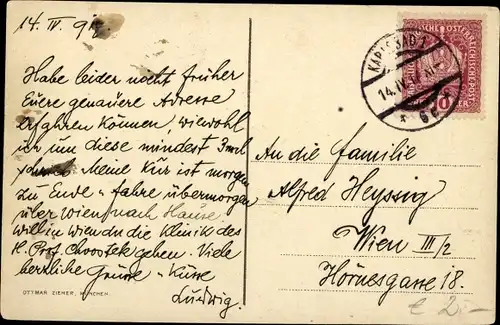 14. IV. 91
Habe leider nicht früher
Euere genauere Adresse
erfahren können, wiewohl
um diese mindest 3 mal
schrieb. Meine Kur ist morgen
zu Ende – fahre übermorgen
über Wien nach Hause
will in Wien in die Klinik des
H. Prof. Chvostek gehen. Viele
herzliche Grüsse – Küsse
Ludwig.
OTTMAR ZIEHER, MÜNCHEN.
KARLSBAD 1
14. IV.
An die Familie
Alfred Heyssig
Wien III/2
Hörnesgasse 18.
€ 2.-